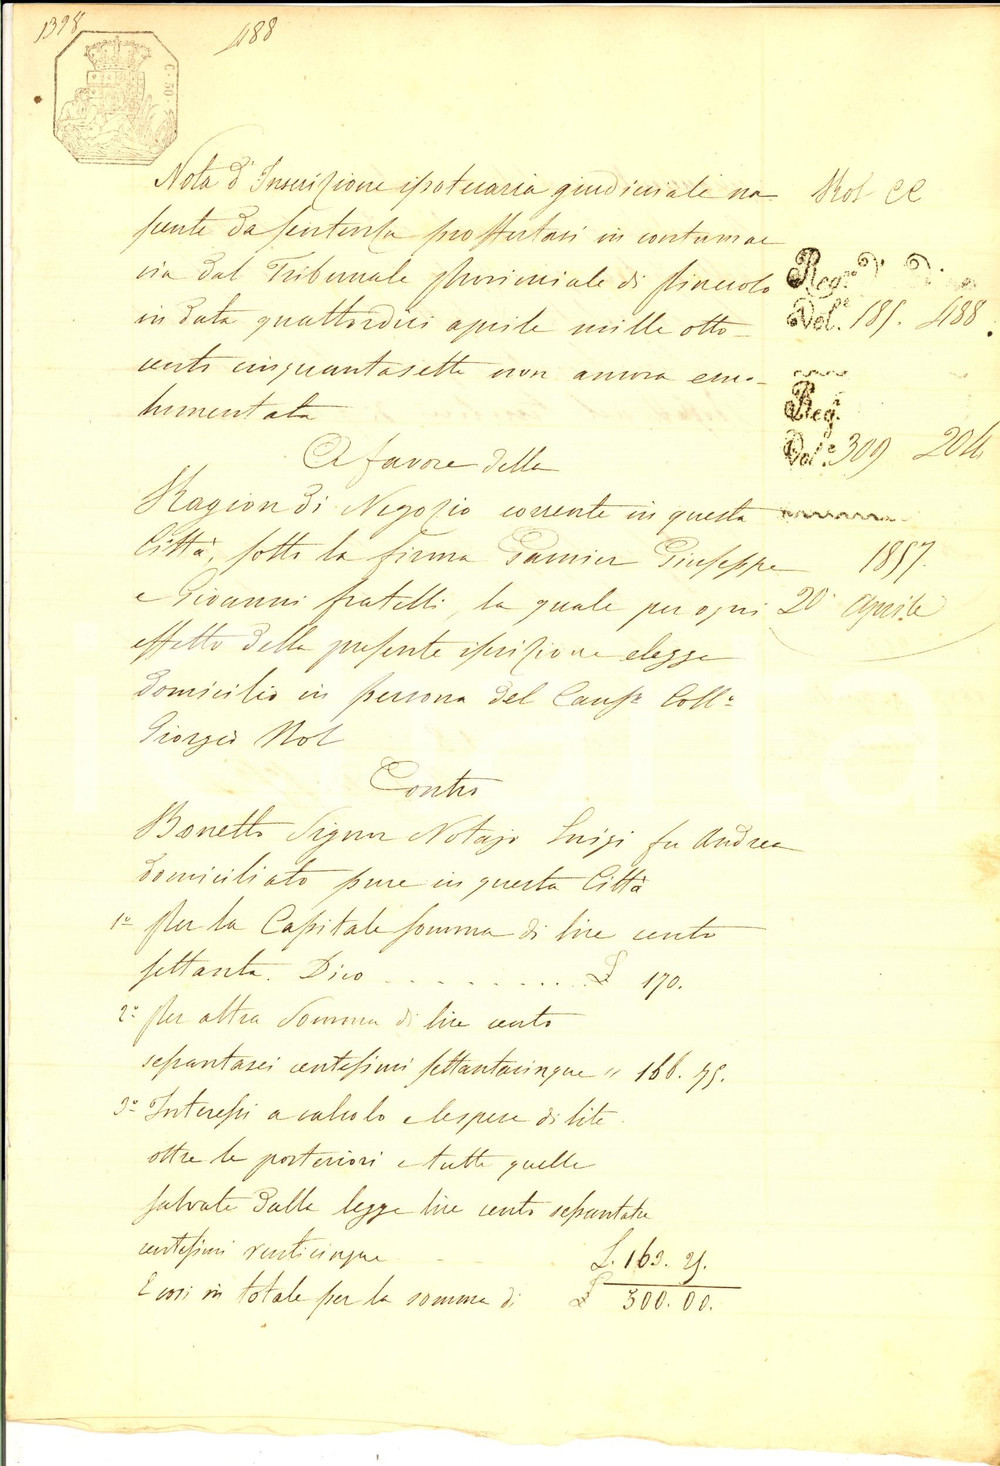 1398
488
C. 50
Nota d'Inscrizione ipotecaria giudiciale na-
scente da sentenza proffertasi in contuma-
cia dal Tribunale provinciale di Pinerolo
in data quattordici aprile mille otto-
cento cinquantasette non ancora emo-
lumentata
A favore della
Ragion di Negozio corrente in questa
Città, sotto la firma Garnier Giuseppe
e Giovanni fratelli, la quale per ogni
effetto della presente iscrizione elegge
domicilio in persona del Caus.co Coll.o
Giorgio Rol
Contro
Bonetto Signor Notajo Luigi fu Andrea
domiciliato pure in questa Città
1° Per la Capitale somma di lire cento
settanta. Dico .......... £ 170.
2° Per altra somma di lire cento
sessantasei centesimi settantacinque " 166. 75.
3° Interessi a calcolo e le spese di lite
oltre le posteriori e tutte quelle
salvate dalla legge lire cento sessantatre
centesimi venticinque L. 163. 25.
E così in totale per la somma di £ 500.00.
Rol CC
Reg.ro D'
Vol.e 185. 488.
Reg.
Vol.e 309 204
1857.
20 aprile